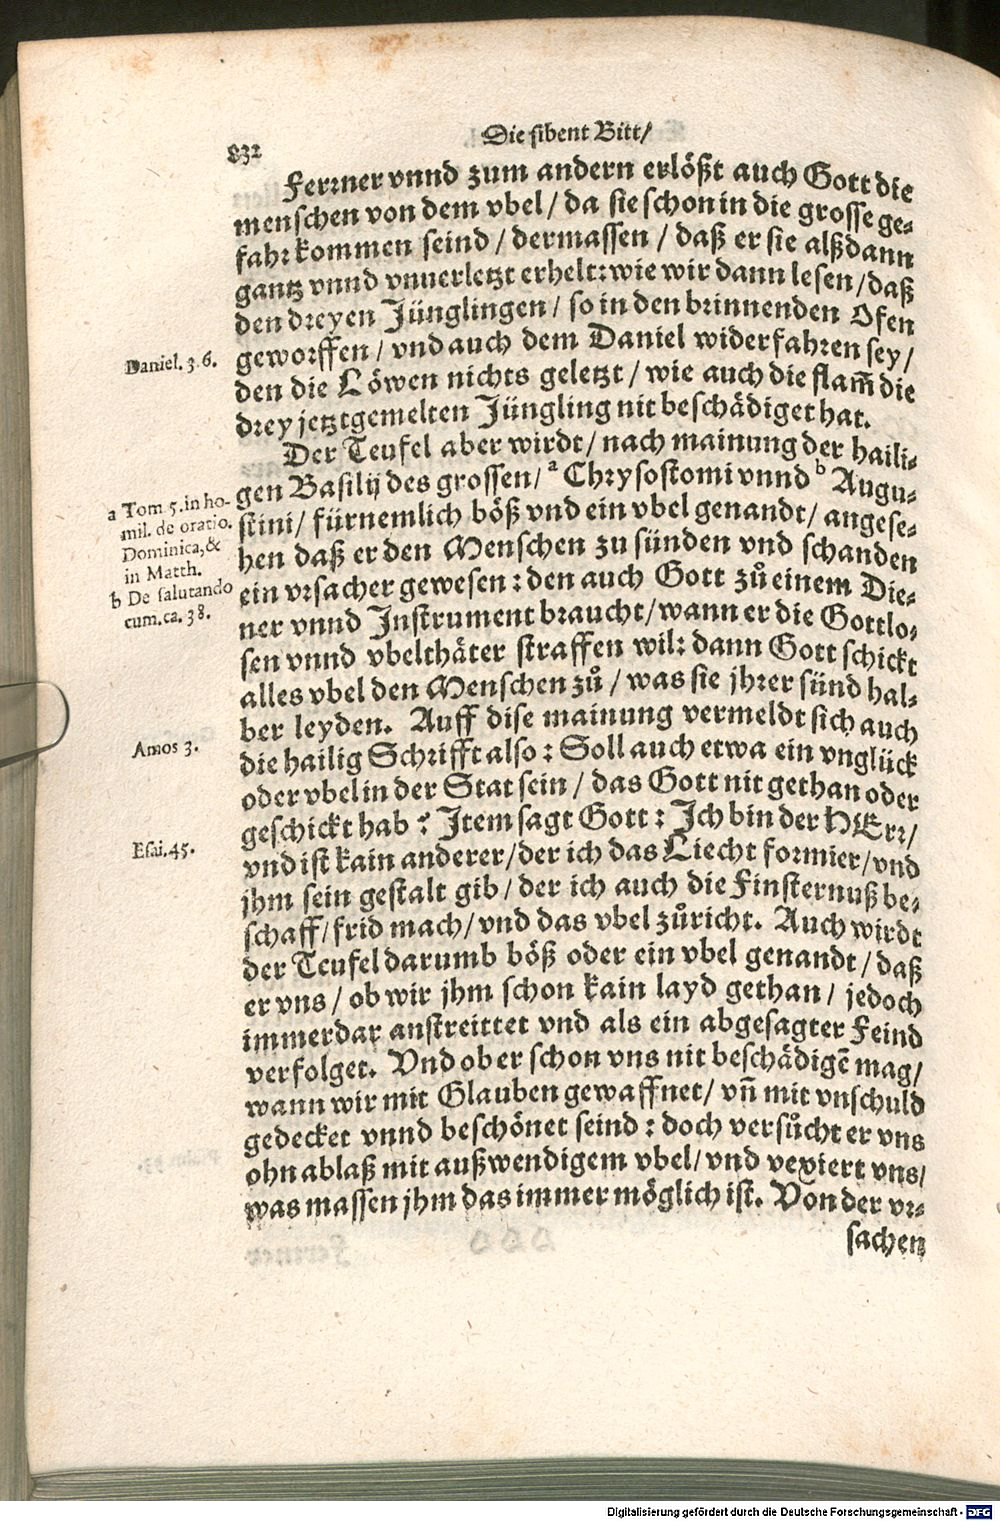 832
Die sibent Bitt/
Ferrner vnnd zum andern erlößt auch Gott die
menschen von dem vbel / da sie schon in die grosse ge-
fahr kommen seind / dermassen / daß er sie alßdann
gantz vnnd vnuerletzt erhelt: wie wir dann lesen / daß
den dreyen Jünglingen / so in den brinnenden Ofen
Daniel. 3. 6.
geworffen / vnd auch dem Daniel widerfahren sey /
den die Löwen nichts geletzt / wie auch die flam̃ die
drey jetztgemelten Jüngling nit beschädiget hat.
Der Teufel aber wirdt / nach mainung der haili-
gen Basilij des grossen / a Chrysostomi vnnd b Augu-
a Tom 5. in ho-
mil. de oratio.
Dominica, &
in Matth.
b De salutando
cum. ca. 38.
stini / fürnemlich böß vnd ein vbel genandt / angese-
hen daß er den Menschen zu sünden vnd schanden
ein vrsacher gewesen: den auch Gott zů einem Die-
ner vnnd Instrument braucht / wann er die Gottlo-
sen vnnd vbelthäter straffen wil: dann Gott schickt
alles vbel den Menschen zů / was sie jhrer sünd hal-
ber leyden. Auff dise mainung vermeldt sich auch
Amos 3.
die hailig Schrifft also: Soll auch etwa ein vnglück
oder vbel in der Stat sein / das Gott nit gethan oder
geschickt hab? Item sagt Gott: Ich bin der HErr /
Esai. 45.
vnd ist kain anderer / der ich das Liecht formier / vnd
jhm sein gestalt gib / der ich auch die Finsternuß be-
schaff / frid mach / vnd das vbel zůricht. Auch wirdt
der Teufel darumb böß oder ein vbel genandt / daß
er vns / ob wir jhm schon kain layd gethan / jedoch
immerdar anstreittet vnd als ein abgesagter Feind
verfolget. Vnd ob er schon vns nit beschädigẽ mag /
wann wir mit Glauben gewaffnet / vñ mit vnschuld
gedecket vnnd beschönet seind: doch versůcht er vns
ohn ablaß mit außwendigem vbel / vnd vexiert vns /
was massen jhm das immer möglich ist. Von der vr-
sachen
Digitalisierung gefördert durch die Deutsche Forschungsgemeinschaft - DFG